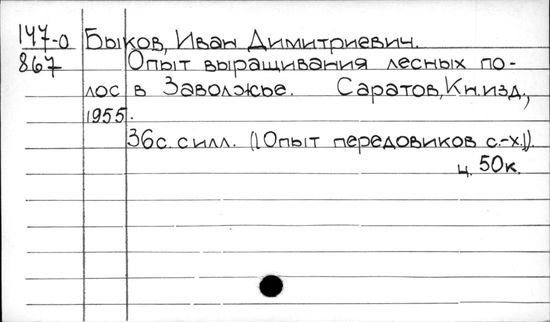 147-0 Быков, Иван Димитриевич.
867 Опыт выращивания лесных по-
лос в Заволжье. Саратов, Кн.изд.,
1955.
36с. с илл. (Опыт передовиков с.-х.).
ц. 50к.